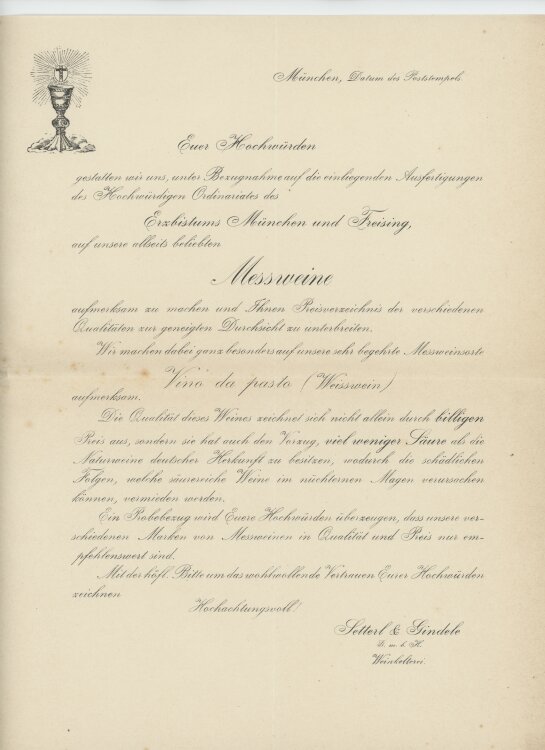 München, Datum des Poststempels.
Euer Hochwürden
gestatten wir uns, unter Bezugnahme auf die einliegenden Ausfertigungen
des Hochwürdigen Ordinariates des
Erzbistums München und Freising,
auf unsere allseits beliebten
Messweine
aufmerksam zu machen und Ihnen Preisverzeichnis der verschiedenen
Qualitäten zur geneigten Durchsicht zu unterbreiten.
Wir machen dabei ganz besonders auf unsere sehr begehrte Messweinsorte
Vino da pasto (Weisswein)
aufmerksam.
Die Qualität dieses Weines zeichnet sich nicht allein durch billigen
Preis aus, sondern sie hat auch den Vorzug, viel weniger Säure als die
Naturweine deutscher Herkunft zu besitzen, wodurch die schädlichen
Folgen, welche säurereiche Weine im nüchternen Magen verursachen
können, vermieden werden.
Ein Probebezug wird Euere Hochwürden überzeugen, dass unsere ver-
schiedenen Marken von Messweinen in Qualität und Preis nur em-
pfehlenswert sind.
Mit der höfl. Bitte um das wohlwollende Vertrauen Eurer Hochwürden
zeichnen
Hochachtungsvoll!
Setterl & Gindele
G. m. b. H.
Weinkelterei.